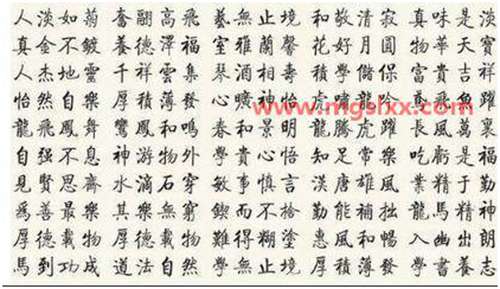 人淡如菊 奮翮高飛 藝無止境 和敬清寂 真味是淡
真金不鍍 養德澤福 室雅蘭馨 花好月圓 物華天寶
人杰地靈 千祥雲集 琴酒相壽 學儲 富貴吉祥
怡然自樂 厚積薄發 心曠神怡 虎嘯 飛魚躍
www.mgslxx.com
龍飛鳳舞 鸞鳳和鳴 春和景明 龍騰虎躍 長風萬裏
自强不息 神游物外 學貴心悟 知足常樂 吃虧是福
見賢思齋 水滴石穿 敏事慎言 漢唐雄風 業精于勤
爲善最樂 其樂無窮 鍥而不捨 勤能補拙 龍馬精神
厚德載物 厚德載物 難得糊塗 惠風和暢 入幽出朗
馬到功成 道法自然 學無止境 厚積薄發 學書養志